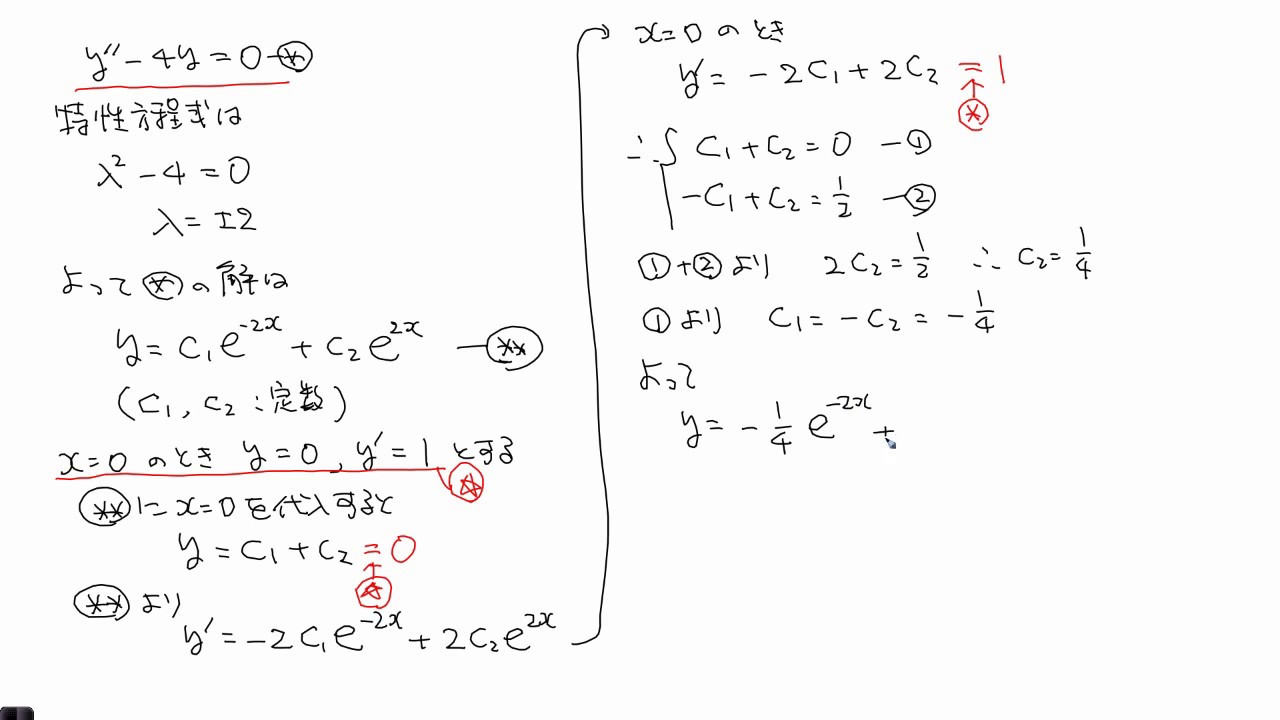 y'' - 4y = 0 -⊛
特性方程式は
λ² - 4 = 0
λ = ±2
よって ⊛ の解は
y = C₁e^{-2x} + C₂e^{2x} -(**)
(C₁, C₂ : 定数)
x=0 のとき y=0, y'=1 とする
☆
(**)に x=0 を代入すると
y = C₁ + C₂ = 0
↑
☆
(**) より
y' = -2C₁e^{-2x} + 2C₂e^{2x}
x=0 のとき
y' = -2C₁ + 2C₂ = 1
↑
☆
∴ { C₁ + C₂ = 0 -①
-C₁ + C₂ = 1/2 -②
①+② より 2C₂ = 1/2 ∴ C₂ = 1/4
① より C₁ = -C₂ = -1/4
よって
y = -1/4 e^{-2x} +